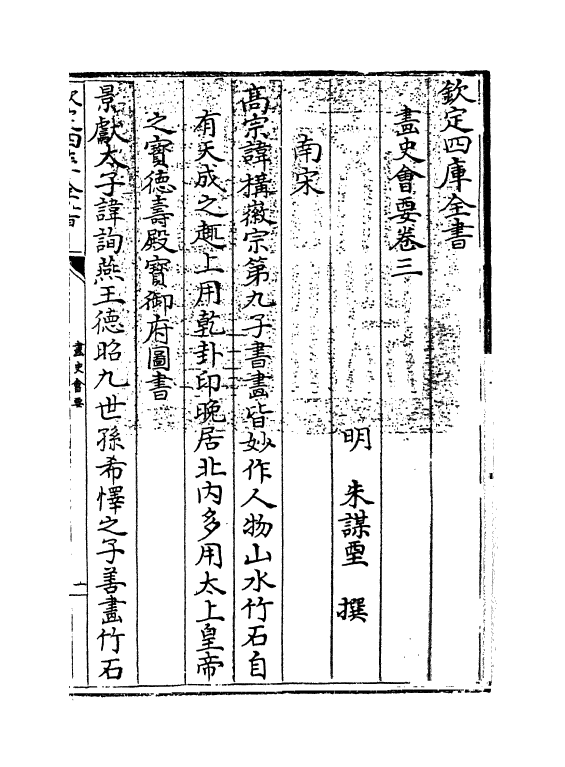 欽定四庫全書
畫史會要卷三
明　朱謀垔　撰
南宋
高宗諱構徽宗第九子書畫皆妙作人物山水竹石自
有天成之趣上用乾卦印晚居北内多用太上皇帝
之寶德壽殿寶御府圖書
景獻太子諱詢燕王德昭九世孫希懌之子善畫竹石
畫史會要